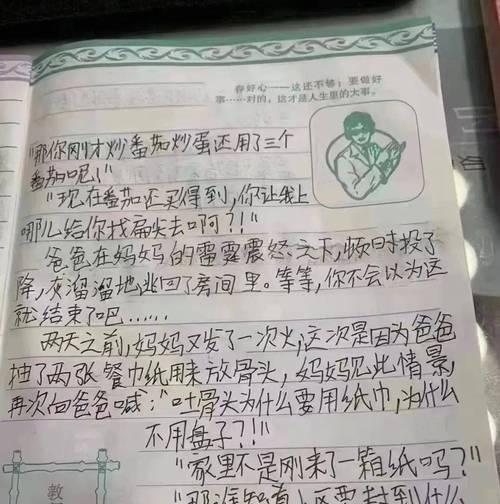 存好心——这还不够；要做好
事……对的，这才是人生里的大事。
"那你刚才炒番茄炒蛋还用了三个
番茄吧！"
"现在番茄还买得到，你让我上
哪儿给你找扁尖去啊？！"
爸爸在妈妈的雷霆震怒之下，顿时投了
降，灰溜溜地逃回了房间里。等等，你不会以为这
就结束了吧……
两天之前，妈妈又发了一次火，这次是因为爸爸
抽了两张餐巾纸用来放骨头，妈妈见此情景，
再次向爸爸喊："吐骨头为什么要用纸巾，为什么
不用盘子？！"
"家里不是刚来了一箱纸吗？"
教